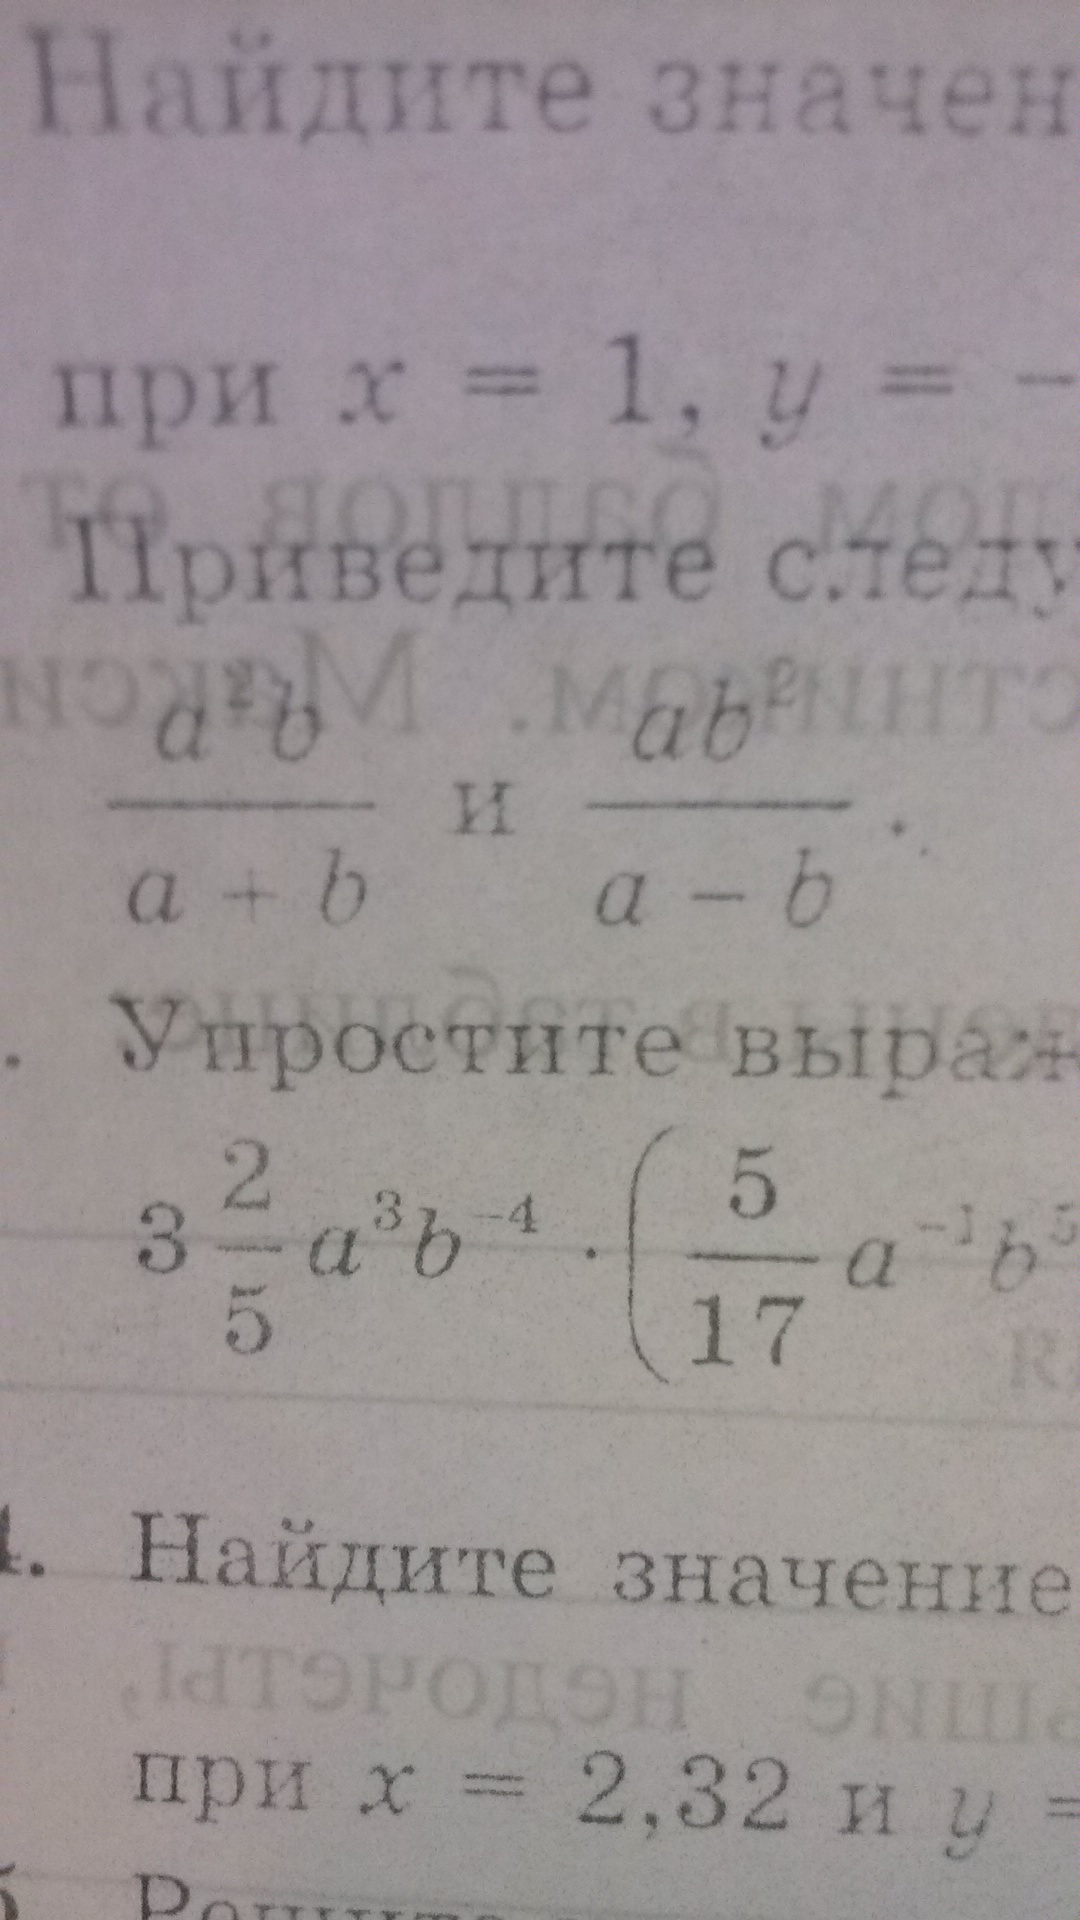 Найдите значен
при x = 1, y = –
Приведите следу
a²b/(a + b) и ab²/(a – b).
. Упростите выраж
3 2/5 a³b⁻⁴ · (5/17 a⁻¹b⁵
4. Найдите значение
при x = 2,32 и y =